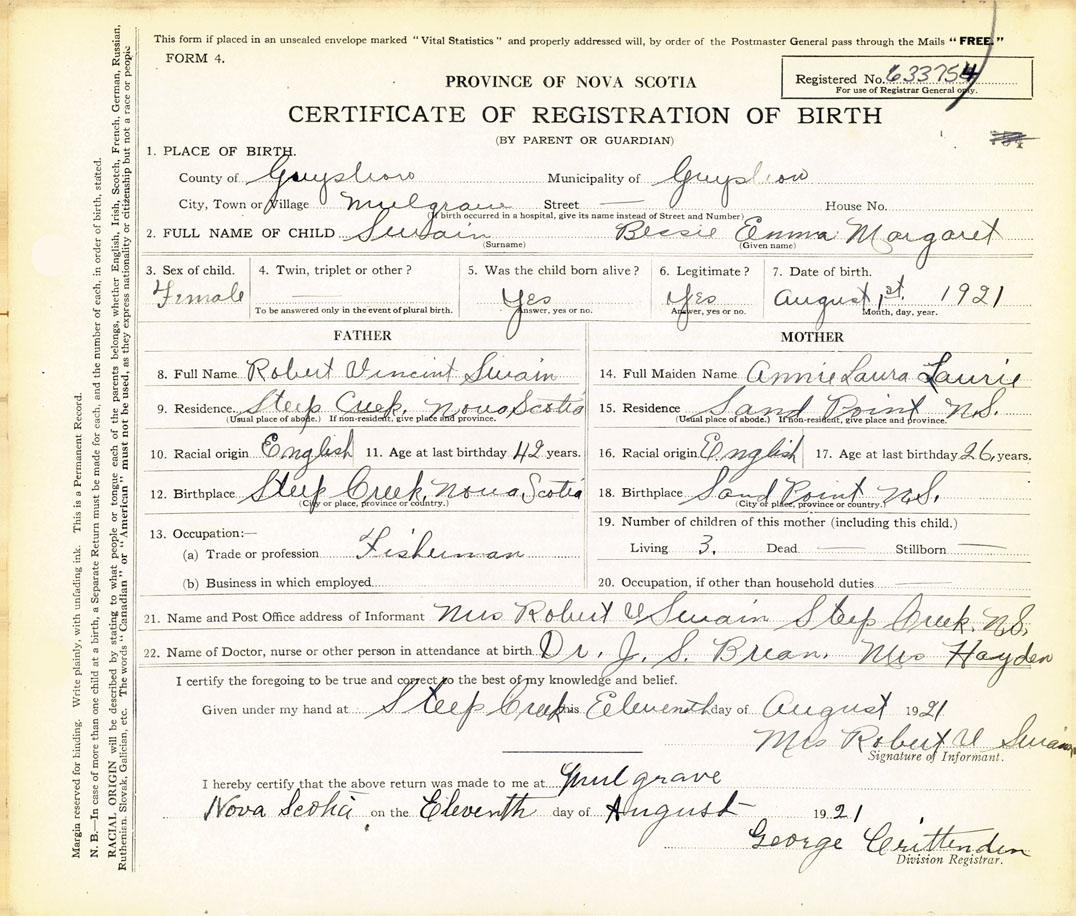 This form if placed in an unsealed envelope marked "Vital Statistics" and properly addressed will, by order of the Postmaster General pass through the Mails "FREE."
FORM 4.
Registered No. 633754
For use of Registrar General only.
PROVINCE OF NOVA SCOTIA
CERTIFICATE OF REGISTRATION OF BIRTH
(BY PARENT OR GUARDIAN)
1. PLACE OF BIRTH.
County of Guysboro Municipality of Guysboro
City, Town or Village Mulgrave Street — House No.
(If birth occurred in a hospital, give its name instead of Street and Number)
2. FULL NAME OF CHILD Swain Bessie Emma Margaret
(Surname) (Given name)
3. Sex of child. 4. Twin, triplet or other? 5. Was the child born alive? 6. Legitimate? 7. Date of birth.
Female — Yes Yes August 1st. 1921
To be answered only in the event of plural birth. Answer, yes or no. Answer, yes or no. Month, day, year.
FATHER
8. Full Name Robert Vincint Swain
9. Residence. Steep Creek, Nova Scotia
(Usual place of abode.) If non-resident, give place and province.
10. Racial origin English 11. Age at last birthday 42 years.
12. Birthplace Steep Creek, Nova Scotia
(City or place, province or country.)
13. Occupation:—
(a) Trade or profession Fisherman
(b) Business in which employed
MOTHER
14. Full Maiden Name Annie Laura Laurie
15. Residence Sand Point N.S.
(Usual place of abode.) If non-resident, give place and province.
16. Racial origin English 17. Age at last birthday 26 years.
18. Birthplace Sand Point N.S.
(City or place, province or country.)
19. Number of children of this mother (including this child.)
Living 3. Dead — Stillborn —
20. Occupation, if other than household duties —
21. Name and Post Office address of Informant Mrs Robert V Swain Steep Creek, N.S.
22. Name of Doctor, nurse or other person in attendance at birth. Dr. J. S. Brean. Mrs Hayden
I certify the foregoing to be true and correct to the best of my knowledge and belief.
Given under my hand at Steep Creek this Eleventh day of August 1921
Mrs Robert V Swain
Signature of Informant.
I hereby certify that the above return was made to me at Mulgrave
Nova Scotia on the Eleventh day of August 1921
George Crittenden
Division Registrar.
Margin reserved for binding. Write plainly, with unfading ink. This is a Permanent Record.
N. B.—In case of more than one child at a birth, a Separate Return must be made for each, and the number of each, in order of birth, stated.
RACIAL ORIGIN will be described by stating to what people or tongue each of the parents belongs, whether English, Irish, Scotch, French, German, Russian,
Ruthenian, Slovak, Galician, etc. The words "Canadian" or "American" must not be used, as they express nationality or citizenship but not a race or people